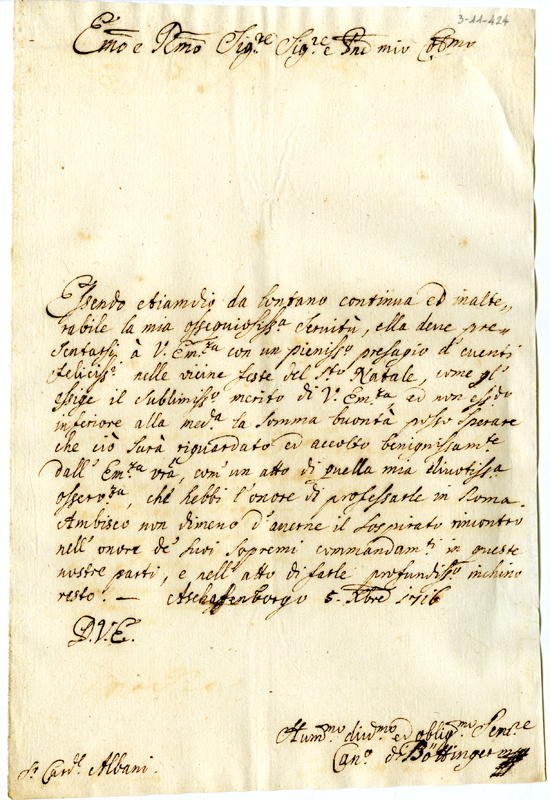 3-11-424
Em͞o e Rm͞o Sig.re Sig.re e Pn͞e mio Co͞mo
Essendo etiamdio da lontano continua ed inalte„
rabile la mia ossequiosiss.a servitù, ella deve pre„
sentarsi à V.a Em.za con un pieniss.o presagio d'eventi
feliciss.i nelle vicine feste del S.to Natale, come gl'
essige il sublimiss.o merito di V.a Em.za, ed non essdo
inferiore alla med.a la somma buontà posso sperare
che ciò sarà riguardato ed accolto benignissam.te
dall' Em.za vr͞a, com' un atto di quella mia divotiss.a
osserv.za, che hebbi l'onore di professarle in Roma.
Ambisco non dimeno d'averne il sospirato rincontro
nell' onore de' suoi sopremi commandam.ti in queste
nostre parti, e nell' atto di farle profundiss.o inchino
resto. — Aschaffenborgo 5. Xbre 1716
D.V.E.
Hum.mo div.mo ed oblig.mo Serv.re
Can.o de Böttinger
S.r Card.l Albani.